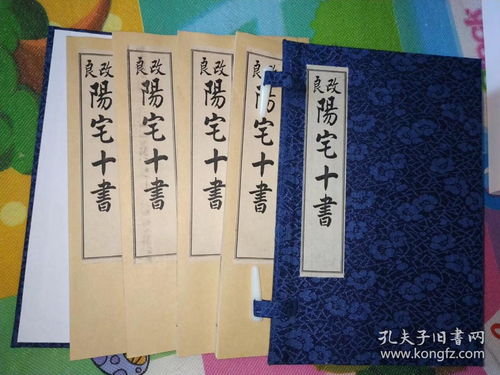 改良
陽宅十書
改良
陽宅十書
改良
陽宅十書
改良
陽宅十書
改良
陽宅十書
孔夫子旧书网
www.kongfz.com